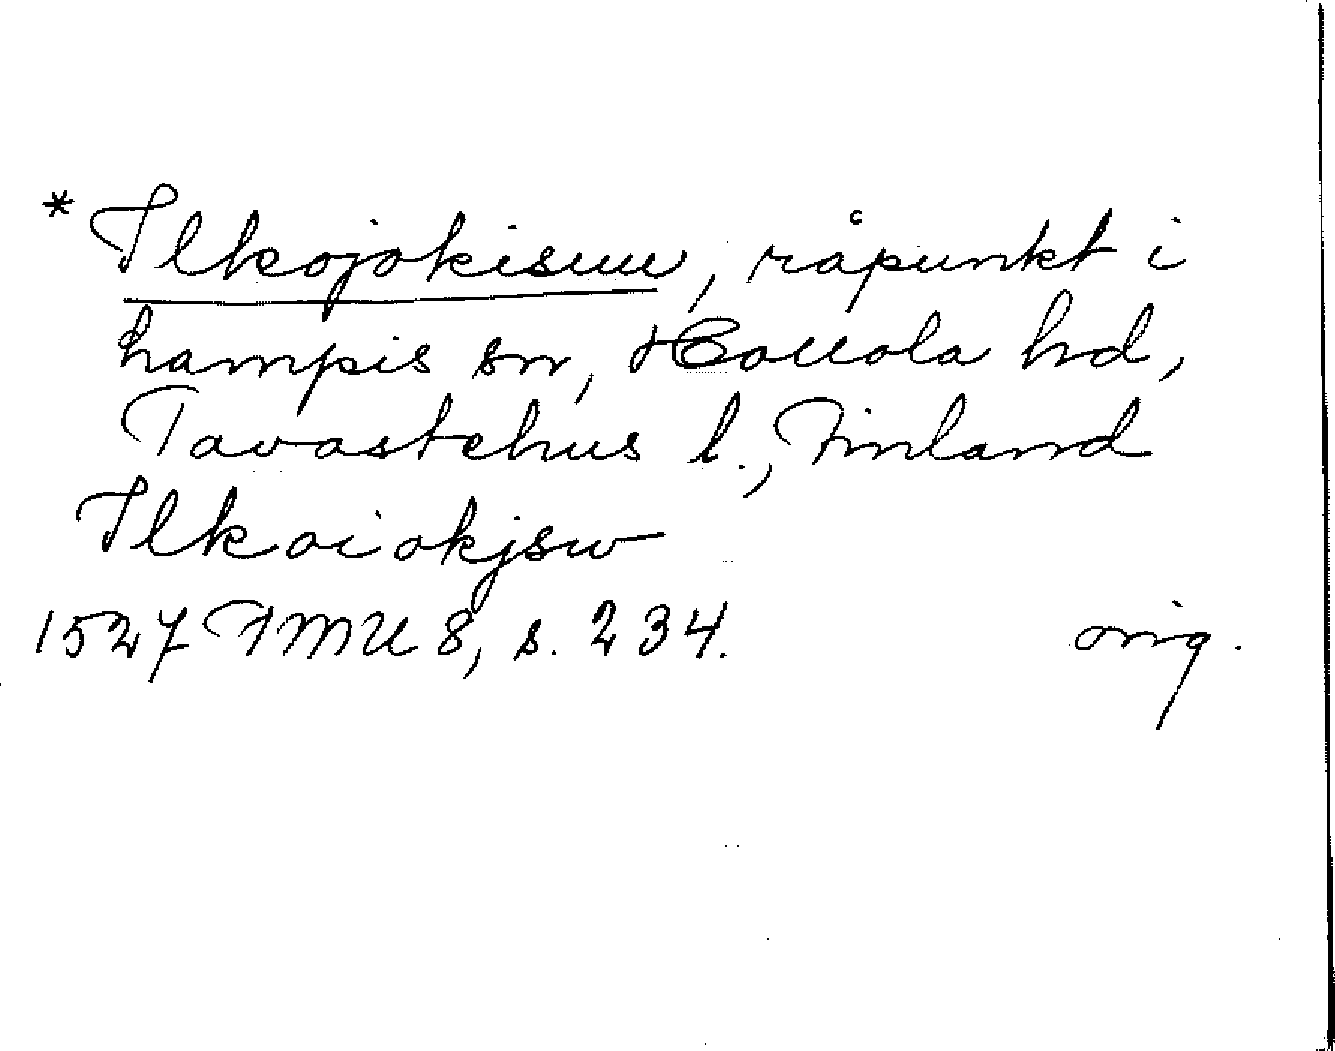 * Ilkojokisuu, råpunkt i
hampis sn, Hollola hd,
Tavastehus l., Finland
Ilkoiokjsw
1527 FMU 8, s. 234. orig.